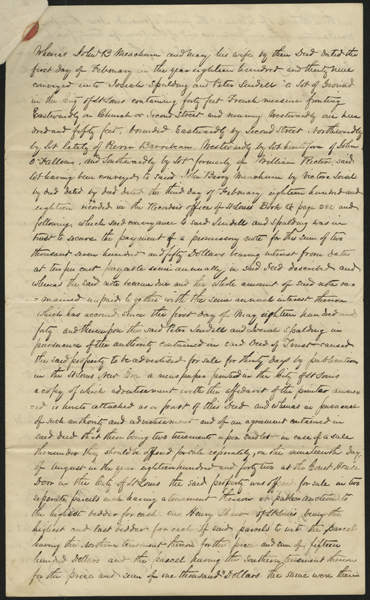 Whereas John B Meachum and Mary his wife by their Deed dated the
first day of February in the year eighteen hundred and thirty nine
conveyed unto Josiah Spalding and Peter Lindell a lot of Ground
in the city of St Louis containing forty feet French measure fronting
Eastwardly on Church or Second Street and running Westwardly one hun
dred and fifty feet, bounded Eastwardly by Second Street, Northwardly
by lot lately of Pierre Barribeau Westwardly by lot of John
O'Fallon, and Southwardly by lot formerly of William Rector, said
lot having been conveyed to said John Berry Meachum by
by deed dated the third day of February eighteen hundred and
eighteen recorded in the Recorders office of St Louis Book page and
following which said conveyance to said Lindell and Spalding was in
trust to secure the payment of a promissory note for the sum of two
thousand seven hundred and fifty Dollars bearing interest from date
at ten per cent payable semi annually in said Deed described and
whereas the said note became due and the whole amount of said note re
mained unpaid together with the semi annual interest thereon
which has accrued since the first day of May eighteen hundred and
forty and thereupon the said Peter Lindell and Josiah Spalding in
pursuance of the authority contained in said Deed of Trust caused
the said property to be advertised for sale for thirty days by publication
in the St Louis New Era a newspaper printed in the City of St Louis
a copy of which advertisement with the affidavit of the printer annex
ed is hereto attached as a part of this Deed and whereas in pursuance
of such authority and advertisement and of an agreement contained in
said deed that there being two tenements upon said lot in case of a sale
thereunder they should be offered for sale separately, on the nineteenth day
of August in the year eighteen hundred and forty two at the Court House
door in the City of St Louis the said property was offered for sale in two
separate parcels each having a tenement thereon at public auction to
the highest bidder for cash one Henry Shaw of St Louis being the
highest and last bidder for each of said parcels to wit the parcel
having the Northern tenement thereon for the price and sum of fifteen
hundred Dollars and the parcel having the Southern tenement thereon
for the price and sum of one thousand Dollars the same were then